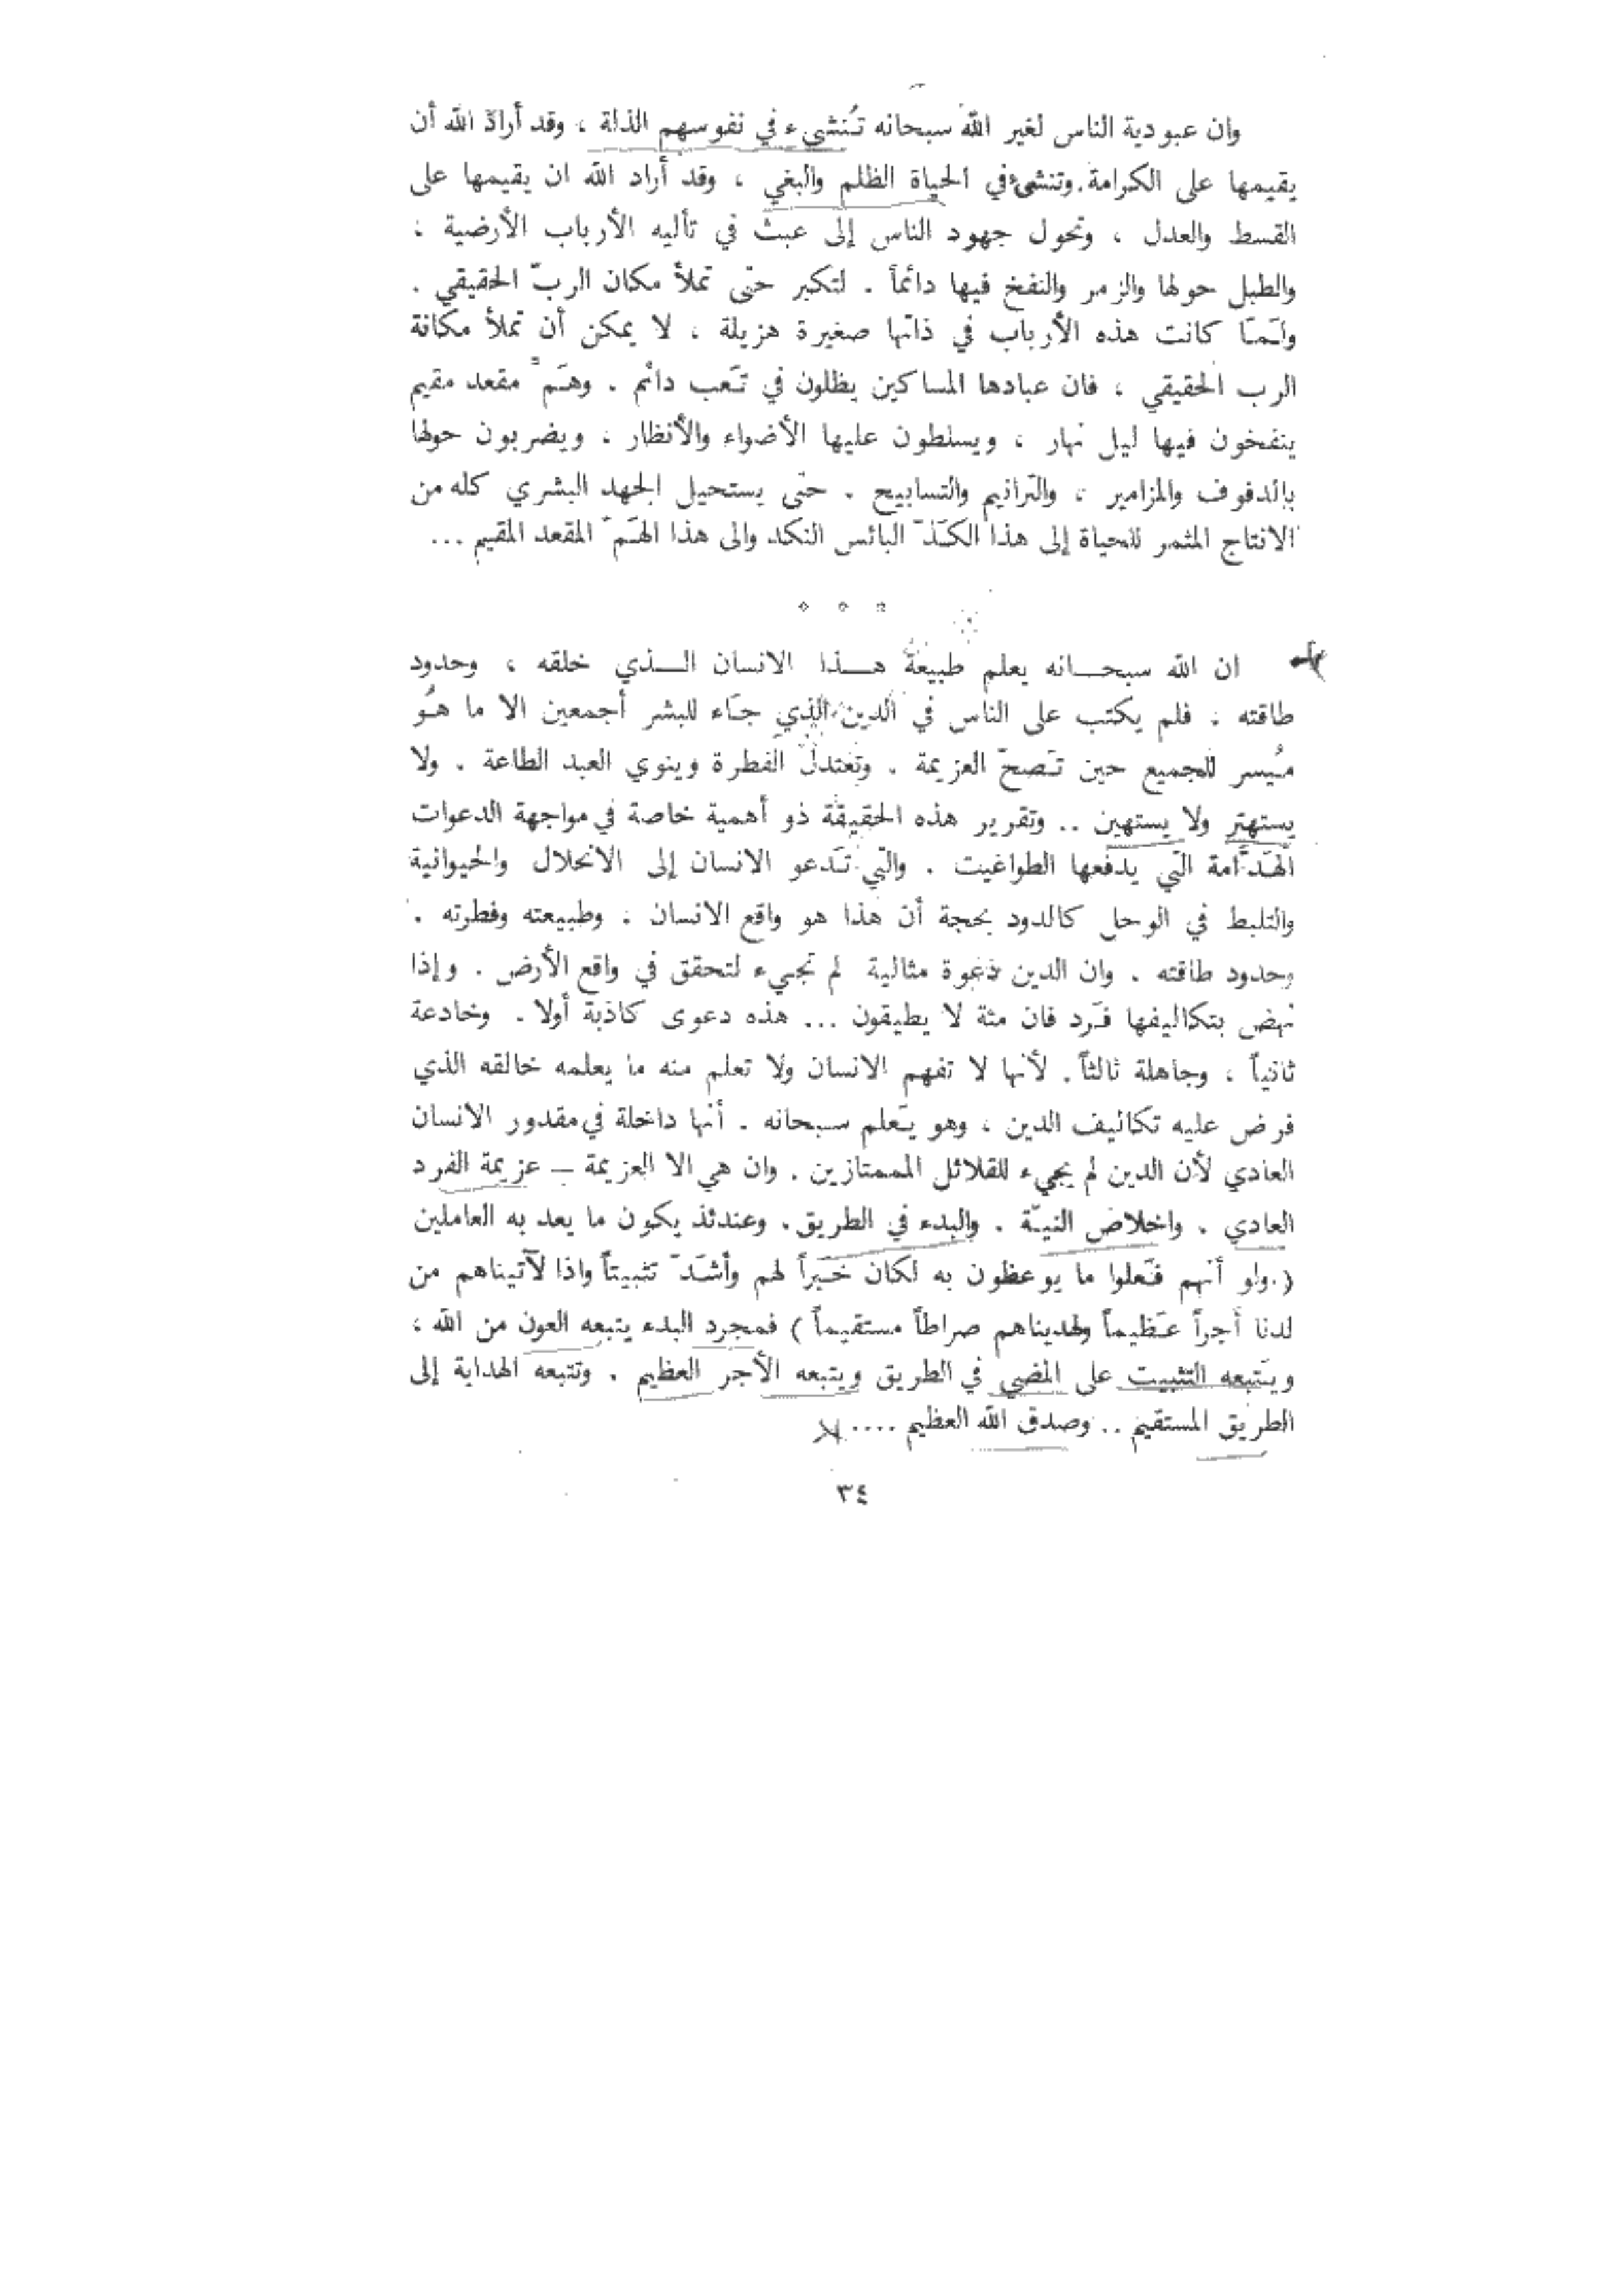 وان عبودية الناس لغير الله سبحانه تُنشيء في نفوسهم الذلة ، وقد أراد الله أن
يقيمها على الكرامة. وتنشئ في الحياة الظلم والبغي ، وقد أراد الله ان يقيمها على
القسط والعدل ، وتحول جهود الناس إلى عبث في تأليه الأرباب الأرضية ؛
والطبل حولها والزمر والنفخ فيها دائماً . لتكبر حتى تملأ مكان الربّ الحقيقي .
ولَمَّا كانت هذه الأرباب في ذاتها صغيرة هزيلة ، لا يمكن أن تملأ مكانة
الرب الحقيقي ، فان عبادها المساكين يظلون في تَعب دائم . وهَمّ مقعد مقيم
ينفخون فيها ليل نهار ، ويسلطون عليها الأضواء والأنظار ، ويضربون حولها
بالدفوف والمزامير ، والترانيم والتسابيح . حتى يستحيل الجهد البشري كله من
الانتاج المثمر للحياة إلى هذا الكَدّ البائس النكد والى هذا الهَمّ المقعد المقيم ...
* * *
ان الله سبحانه يعلم طبيعة هذا الانسان الذي خلقه ، وحدود
طاقته ؛ فلم يكتب على الناس في الدين الذي جَاء للبشر أجمعين الا ما هُو
مُيسر للجميع حين تَصحّ العزيمة . وتعتدل الفطرة وينوي العبد الطاعة . ولا
يستهتر ولا يستهين .. وتقرير هذه الحقيقة ذو أهمية خاصة في مواجهة الدعوات
الهَدَّامة التي يدفعها الطواغيت . والتي تَدعو الانسان إلى الانحلال والحيوانية
والتلبط في الوحل كالدود بحجة أن هذا هو واقع الانسان ؛ وطبيعته وفطرته .
وحدود طاقته . وان الدين دَعوة مثالية لم تجيء لتحقق في واقع الأرض . وإذا
نهض بتكاليفها فَرد فان مئة لا يطيقون ... هذه دعوى كاذبة أولا . وخادعة
ثانياً ، وجاهلة ثالثاً . لأنها لا تفهم الانسان ولا تعلم منه ما يعلمه خالقه الذي
فرض عليه تكاليف الدين ، وهو يَعلم سبحانه . أنها داخلة في مقدور الانسان
العادي لأن الدين لم يجيء للقلائل الممتازين . وان هي الا العزيمة – عزيمة الفرد
العادي . واخلاص النيّة . والبدء في الطريق . وعندئذ يكون ما يعد به العاملين
( ولو أنهم فَعلوا ما يوعظون به لكان خَيراً لهم وأشَدّ تثبيتاً واذا لآتيناهم من
لدنا أجراً عَظيماً ولهديناهم صراطاً مستقيماً ) فمجرد البدء يتبعه العون من الله ؛
ويَتبعه التثبيت على المضي في الطريق ويتبعه الأجر العظيم . وتتبعه الهداية إلى
الطريق المستقيم .. وصدق الله العظيم ....
٣٤